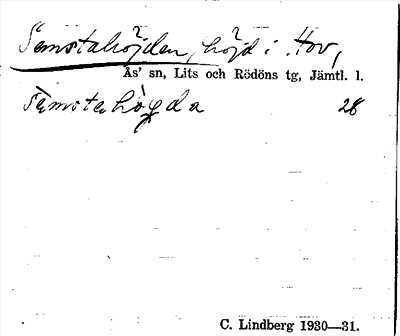 Semstahöjden, höjd i Hov,
Ås' sn, Lits och Rödöns tg, Jämtl. l.
sæ̀mstahö̀gda 28
C. Lindberg 1930—31.